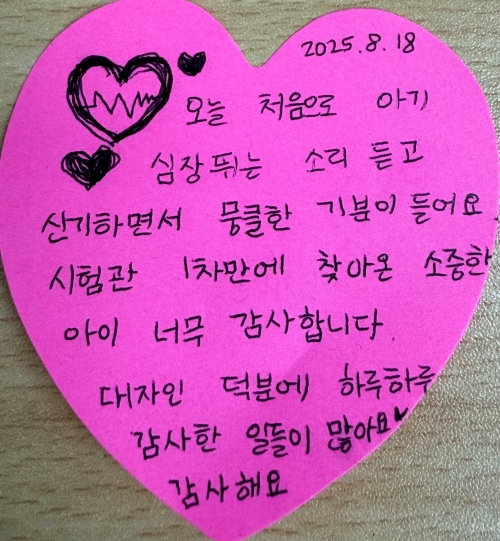 2025.8.18
오늘 처음으로 아기
심장뛰는 소리 듣고
신기하면서 뭉클한 기분이 들어요
시험관 1차만에 찾아온 소중한
아이 너무 감사합니다.
대자인 덕분에 하루하루
감사한 일들이 많아요♥
감사해요